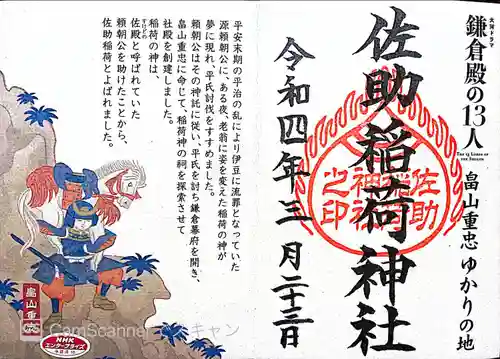 大河ドラマ
鎌倉殿の13人
The 13 Lords of the Shogun
畠山重忠 ゆかりの地
佐助稲荷神社
佐助
稲荷
神社
之印
令和四年三月二十三日
平安末期の平治の乱により伊豆に流罪となっていた
源頼朝公に、ある夜、老翁に姿を変えた稲荷の神が
夢に現れ、平氏討伐をすすめました。
頼朝公はその神託に従い、平氏を討ち鎌倉幕府を開き、
畠山重忠に命じて、稲荷神の祠を探索させて
社殿を創建しました。
稲荷の神は、
佐殿と呼ばれていた
すけどの
頼朝公を助けたことから、
佐助稲荷とよばれました。
畠山重忠
NHK
エンタープライズ
CamScanner でスキャン